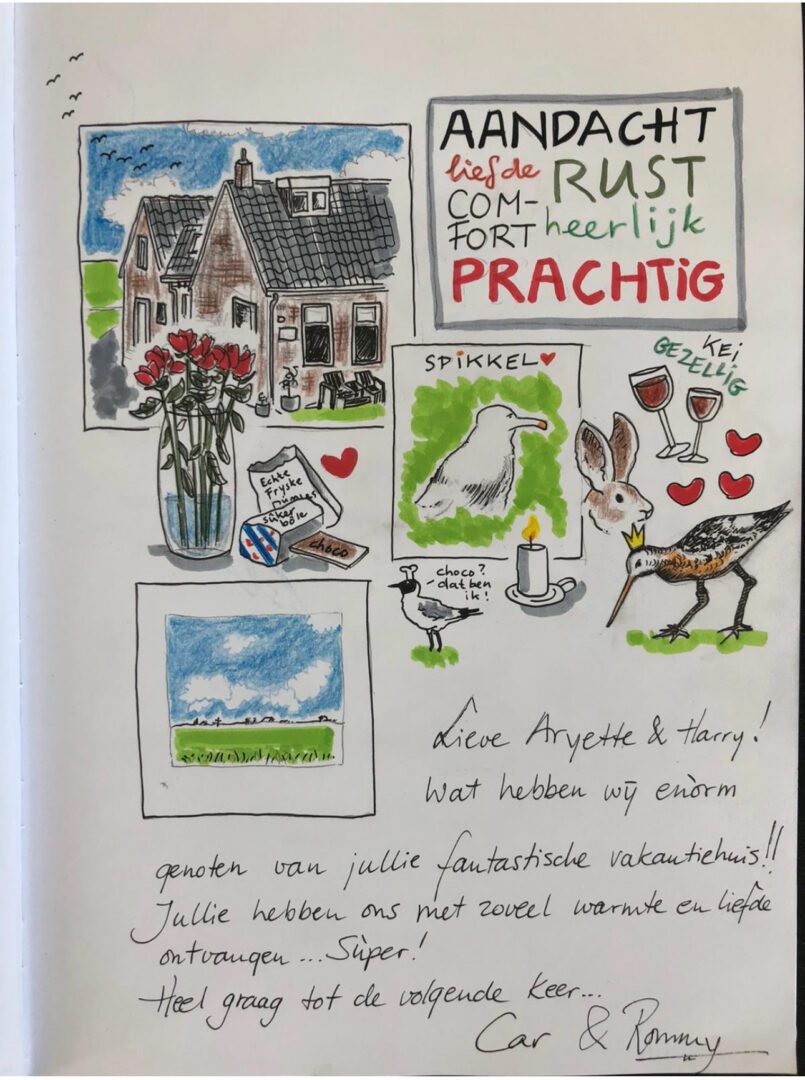 AANDACHT
liefde RUST
COM-
FORT heerlijk
PRACHTIG
SPIKKEL
KEI
GEZELLIG
Echte
Fryske
dúmkes
sûker
bôle
choco
choco?
dat ben
ik!
Lieve Aryette & Harry!
Wat hebben wij enòrm
genoten van jullie fantastische vakantiehuis!!
Jullie hebben ons met zoveel warmte en liefde
ontvangen... Sùper!
Heel graag tot de volgende keer...
Car & Rommy